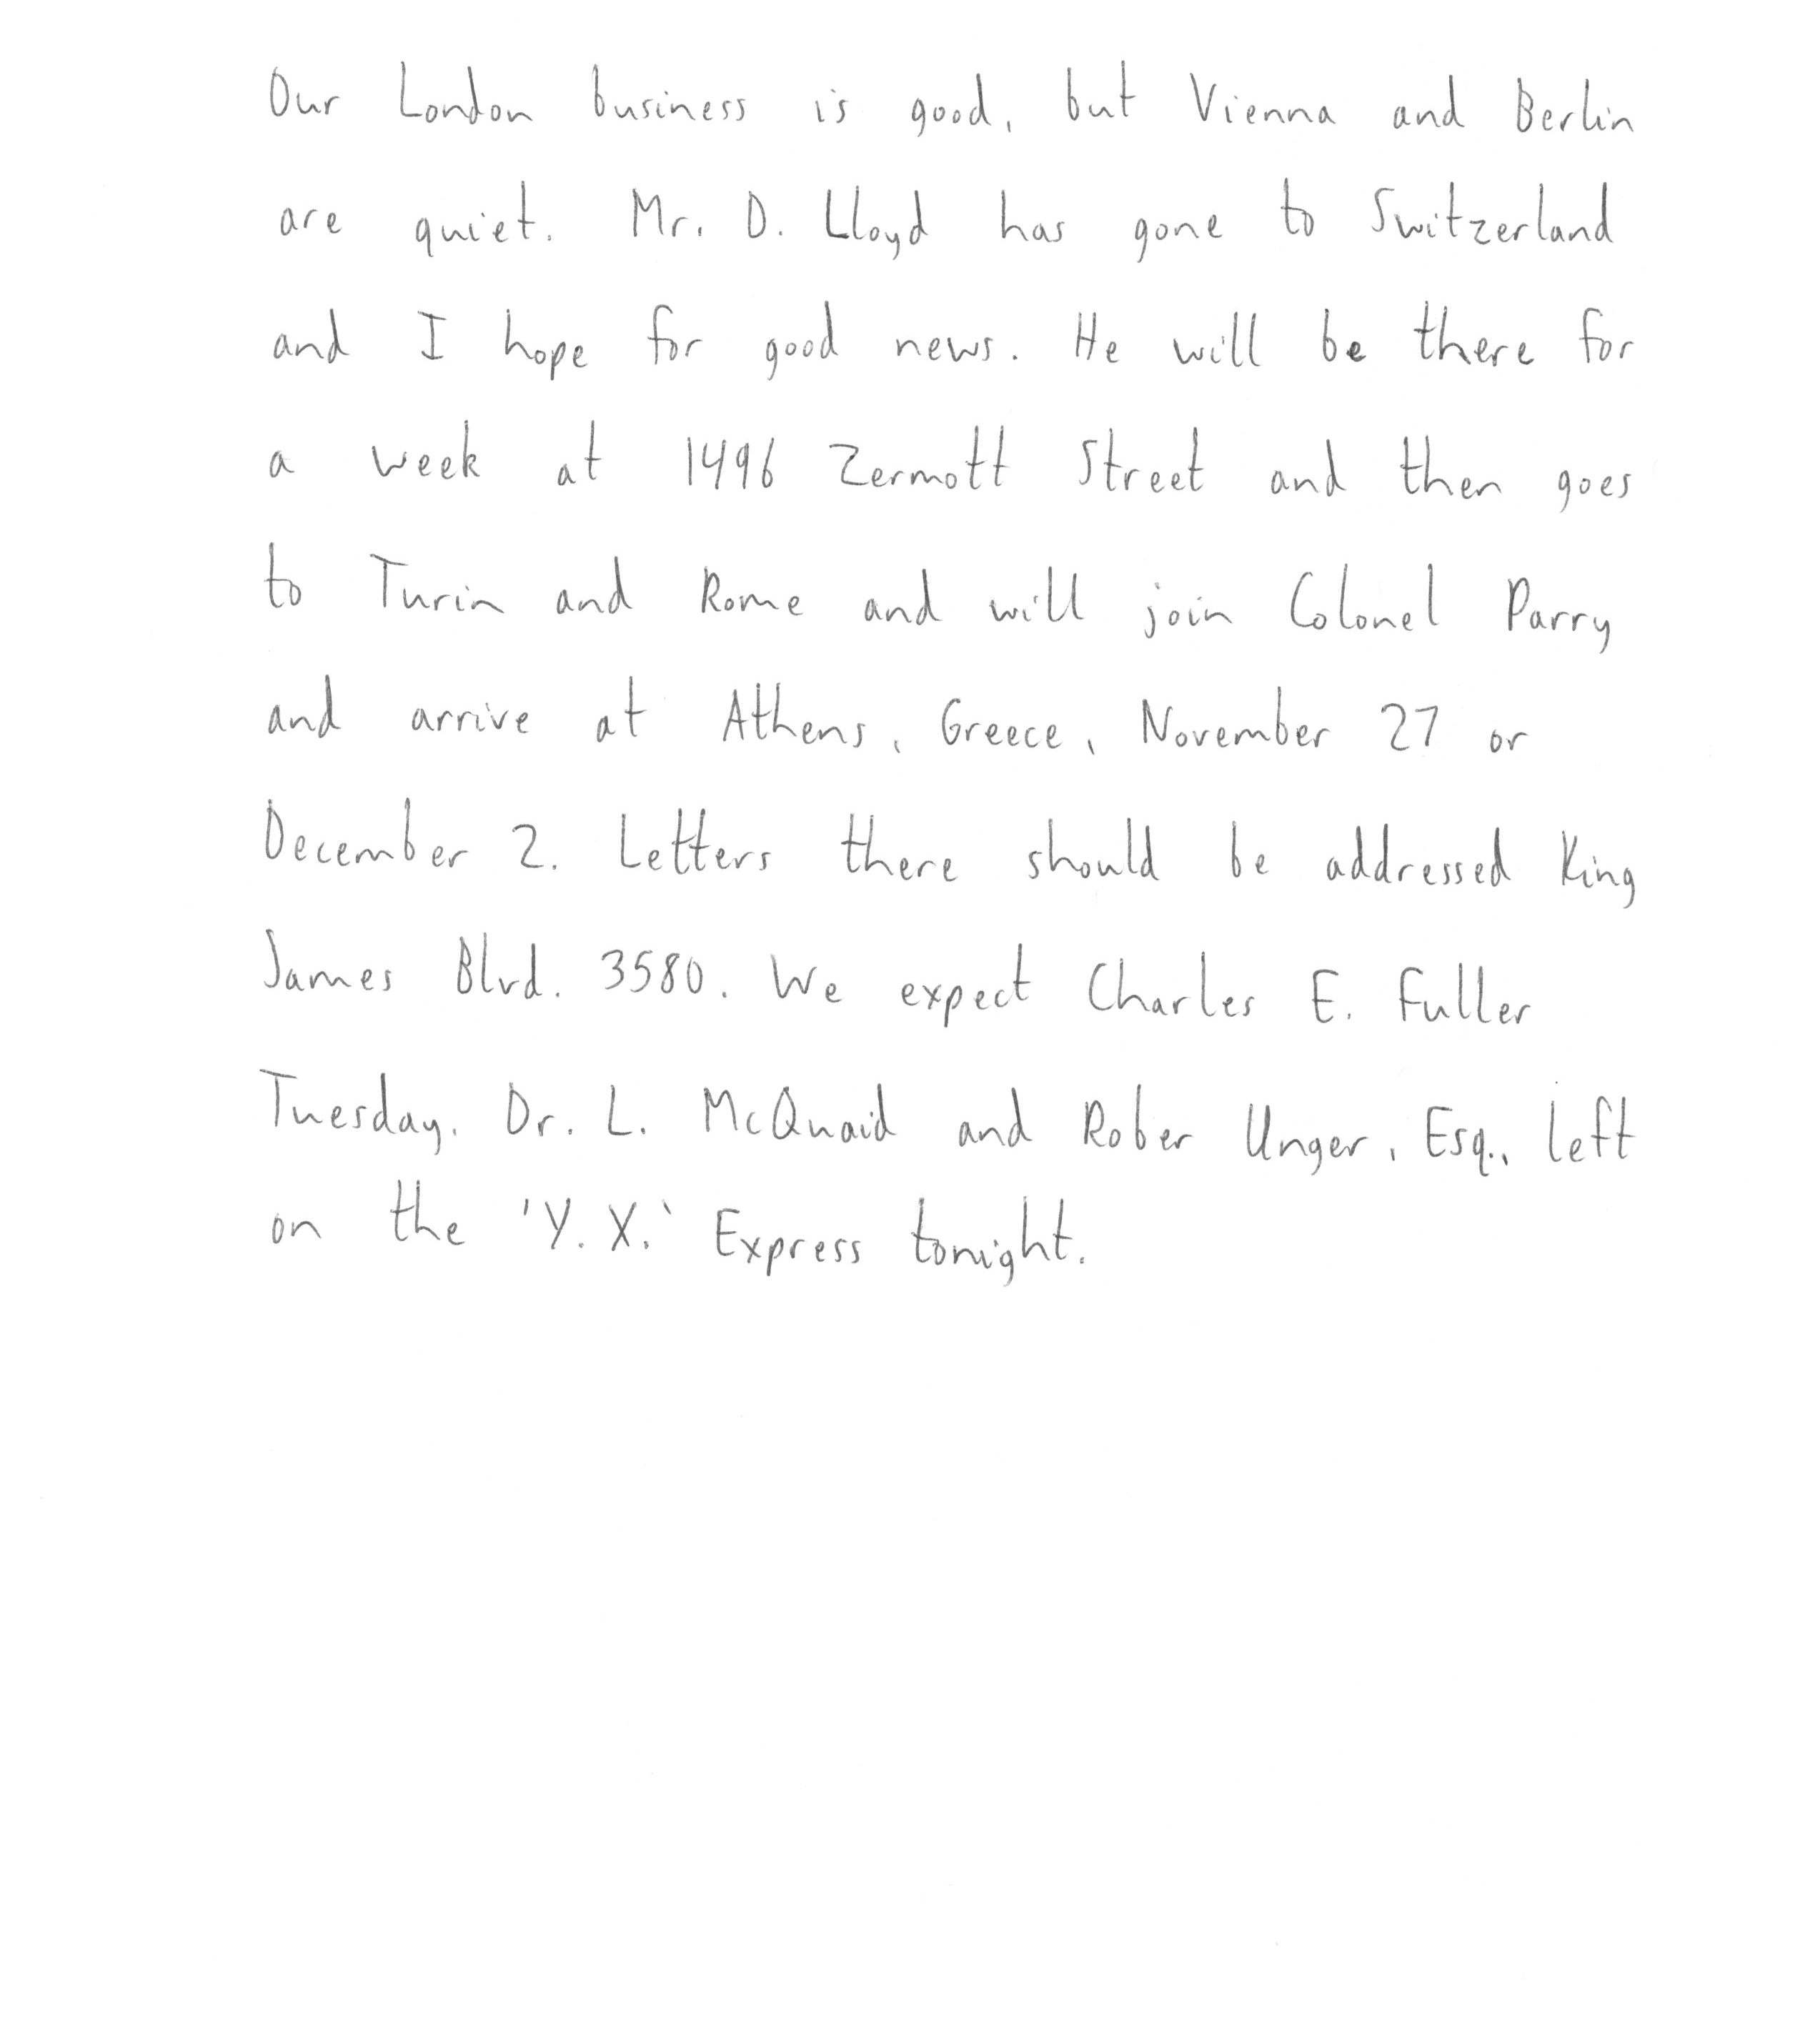 Our London business is good, but Vienna and Berlin
are quiet. Mr. D. Lloyd has gone to Switzerland
and I hope for good news. He will be there for
a week at 1496 Zermott Street and then goes
to Turin and Rome and will join Colonel Parry
and arrive at Athens, Greece, November 27 or
December 2. Letters there should be addressed King
James Blvd. 3580. We expect Charles E. Fuller
Tuesday. Dr. L. McQuaid and Rober Unger, Esq., left
on the 'Y. X.' Express tonight.